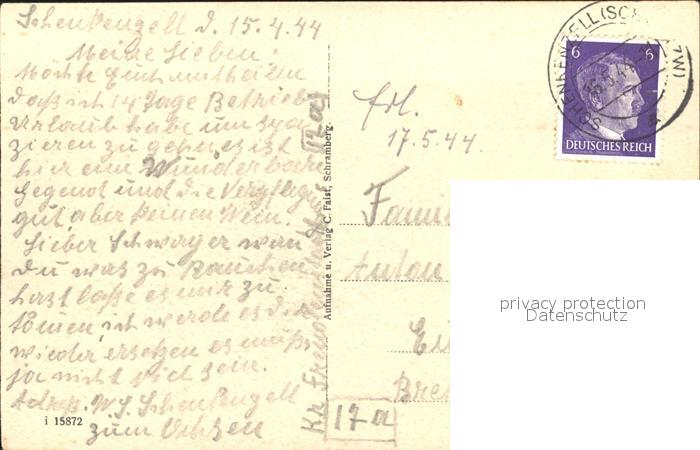 Schenkenzell d. 15.4.44
Meine Lieben!
Möchte Euch mitheilen
daß ich 14 Tage Betriebs
Urlaub habe um
zieren zu gehn es ist
hier eine Wunderbare
Gegend und die Verpfleg
gut, aber keinen Wein.
Lieber Schwager wen
Du was zu Rauchen
hast laße es mir zu
kommen, ich werde es dir
wieder ersetzen es muß
ja nicht viel sein.
Schenkenzell
zum Ochsen
i 15872
Kr. Freudenstadt
17a
Aufnahme u. Verlag C. Faist, Schramberg.
17a
17.5.44.
Anton
Bre
SCHENKENZELL (SCHWARZW)
6 6
DEUTSCHES REICH
privacy protection
Datenschutz